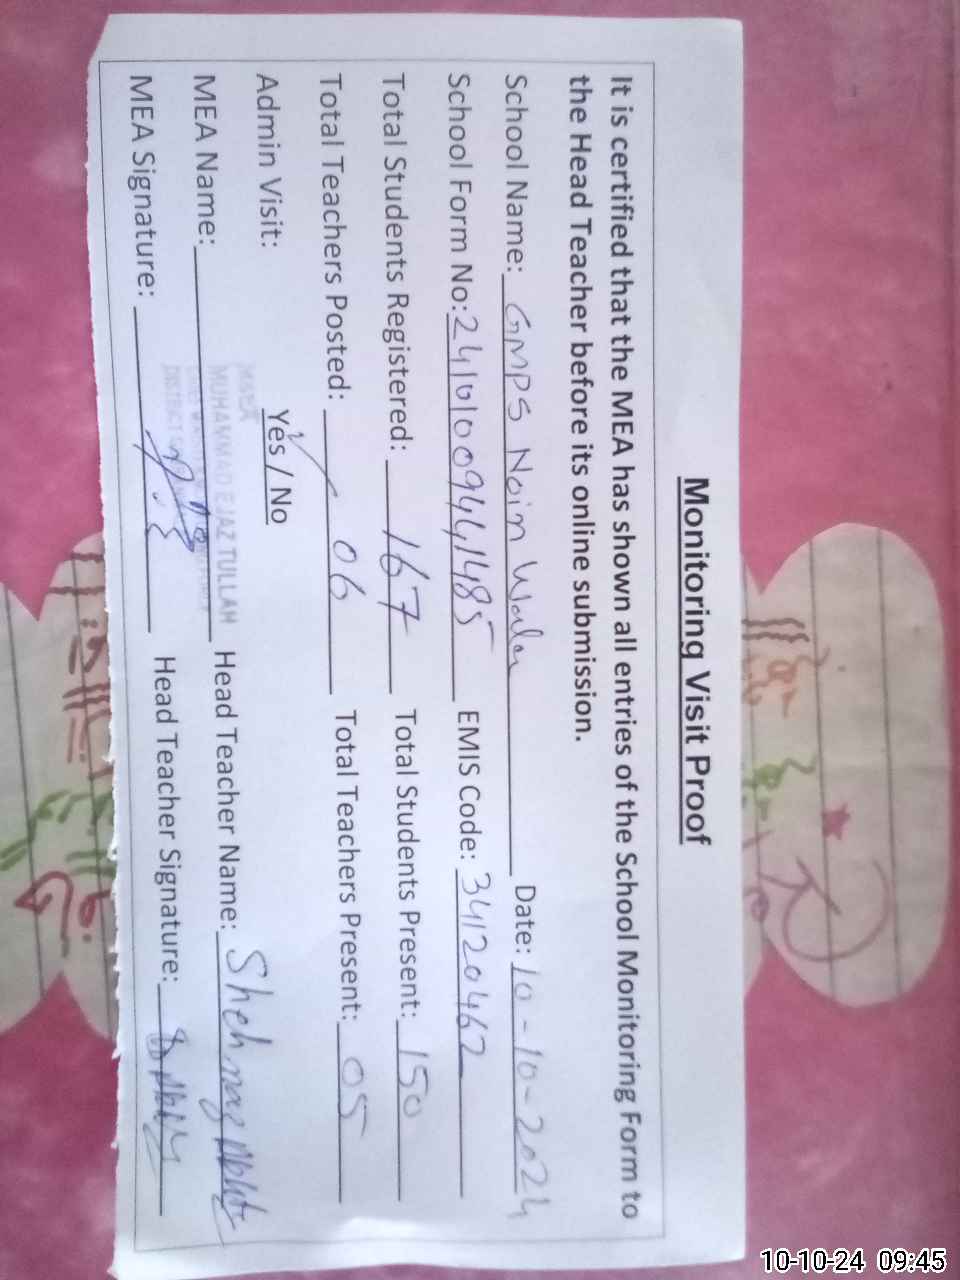 Monitoring Visit Proof
It is certified that the MEA has shown all entries of the School Monitoring Form to
the Head Teacher before its online submission.
School Name: GMPS Naim Date: 10-10-2024
School Form No: 24101009441485 EMIS Code: 34120462
Total Students Registered: 167 Total Students Present: 150
Total Teachers Posted: 06 Total Teachers Present: 05
Admin Visit: Yes / No
MEA Name: MUHAMMAD EJAZ TULLAH Head Teacher Name: Shehnaz
MEA Signature: Head Teacher Signature:
10-10-24 09:45